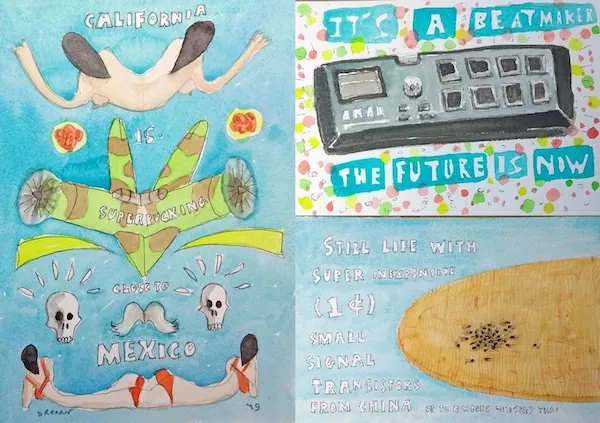 CALIFORNIA
IS
SUPERFUCKING
CLOSE TO
MEXICO
IT'S A BEATMAKER
THE FUTURE IS NOW
STILL LIFE WITH
SUPER INEXPENSIVE
(1¢)
SMALL
SIGNAL
TRANSISTORS
FROM CHINA